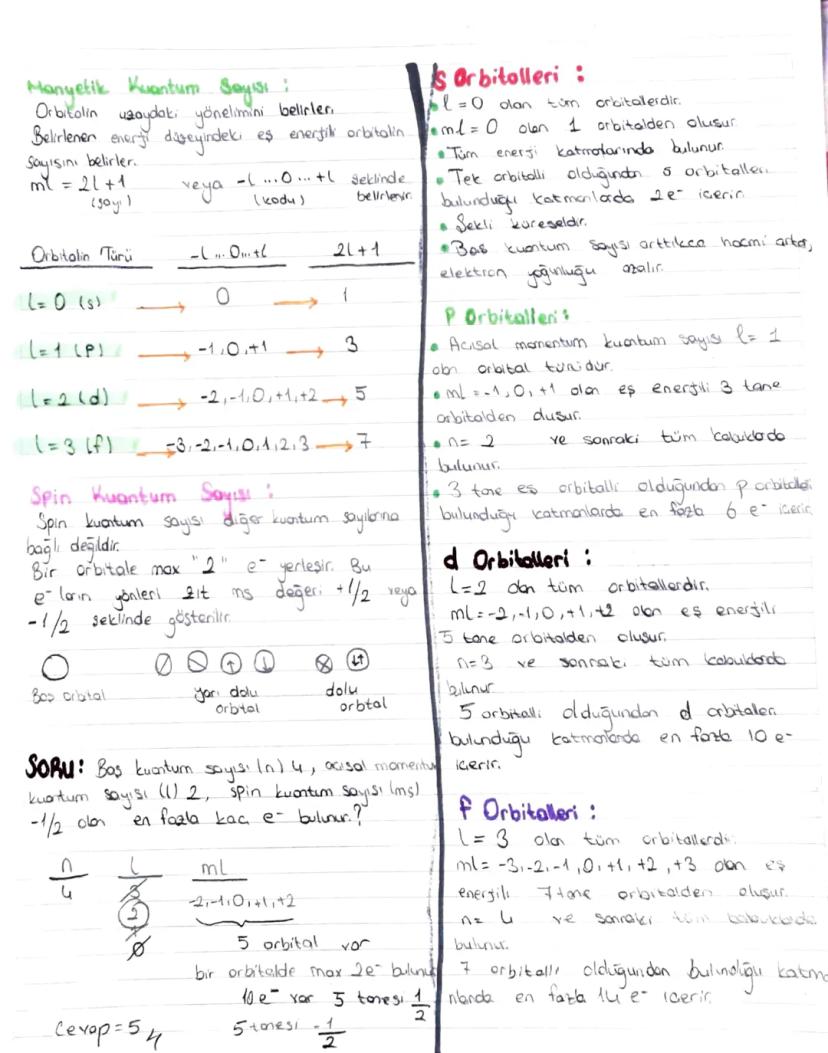 Manyetik Kuantum Sayısı :
Orbitalin uzaydaki yönelimini belirler.
Belirlenen enerji düzeyindeki eş enerjili orbitalin
sayısını belirler.
ml = 2l+1 veya -l ... 0 ... +l şeklinde
(sayı) (kodu) belirlenir.
Orbitalin Türü -l ... 0 ... +l 2l+1
l = 0 (s) → 0 → 1
l = 1 (p) → -1, 0, +1 → 3
l = 2 (d) → -2, -1, 0, +1, +2 → 5
l = 3 (f) → -3, -2, -1, 0, 1, 2, 3 → 7
Spin Kuantum Sayısı :
Spin kuantum sayısı diğer kuantum sayılarına
bağlı değildir.
Bir orbitale max "2" e- yerleşir. Bu
e- ların yönleri zıt ms değeri +1/2 veya
-1/2 şeklinde gösterilir.
Boş orbital yarı dolu dolu
orbital orbital
SORU: Baş kuantum sayısı (n) 4, açısal momentum
kuantum sayısı (l) 2, spin kuantum sayısı (ms)
-1/2 olan en fazla kaç e- bulunur?
n l ml
4 3
2 -2, -1, 0, +1, +2
1
0 5 orbital var
bir orbitalde max 2e- bulunur
10 e- var 5 tanesi 1/2
Cevap = 5 5 tanesi -1/2
s Orbitalleri :
l = 0 olan tüm orbitallerdir.
ml = 0 olan 1 orbitalden oluşur.
Tüm enerji katmanlarında bulunur.
Tek orbitalli olduğundan s orbitalleri
bulunduğu katmanlarda 2e- içerir.
Şekli küreseldir.
Baş kuantum sayısı arttıkça hacmi artar,
elektron yoğunluğu azalır.
P Orbitalleri :
Açısal momentum kuantum sayısı l = 1
olan orbital türüdür.
ml = -1, 0, +1 olan eş enerjili 3 tane
orbitalden oluşur.
n = 2 ve sonraki tüm kabuklarda
bulunur.
3 tane eş orbitalli olduğundan p orbitalleri
bulunduğu katmanlarda en fazla 6 e- içerir.
d Orbitalleri :
l = 2 olan tüm orbitallerdir.
ml = -2, -1, 0, +1, +2 olan eş enerjili
5 tane orbitalden oluşur.
n=3 ve sonraki tüm kabuklarda
bulunur
5 orbitalli olduğundan d orbitalleri
bulunduğu katmanlarda en fazla 10 e-
içerir.
f Orbitalleri :
l = 3 olan tüm orbitallerdir.
ml = -3, -2, -1, 0, +1, +2, +3 olan eş
enerjili 7 tane orbitalden oluşur.
n = 4 ve sonraki tüm kabuklarda
bulunur.
7 orbitalli olduğundan bulunduğu katma
nlarda en fazla 14 e- içerir.